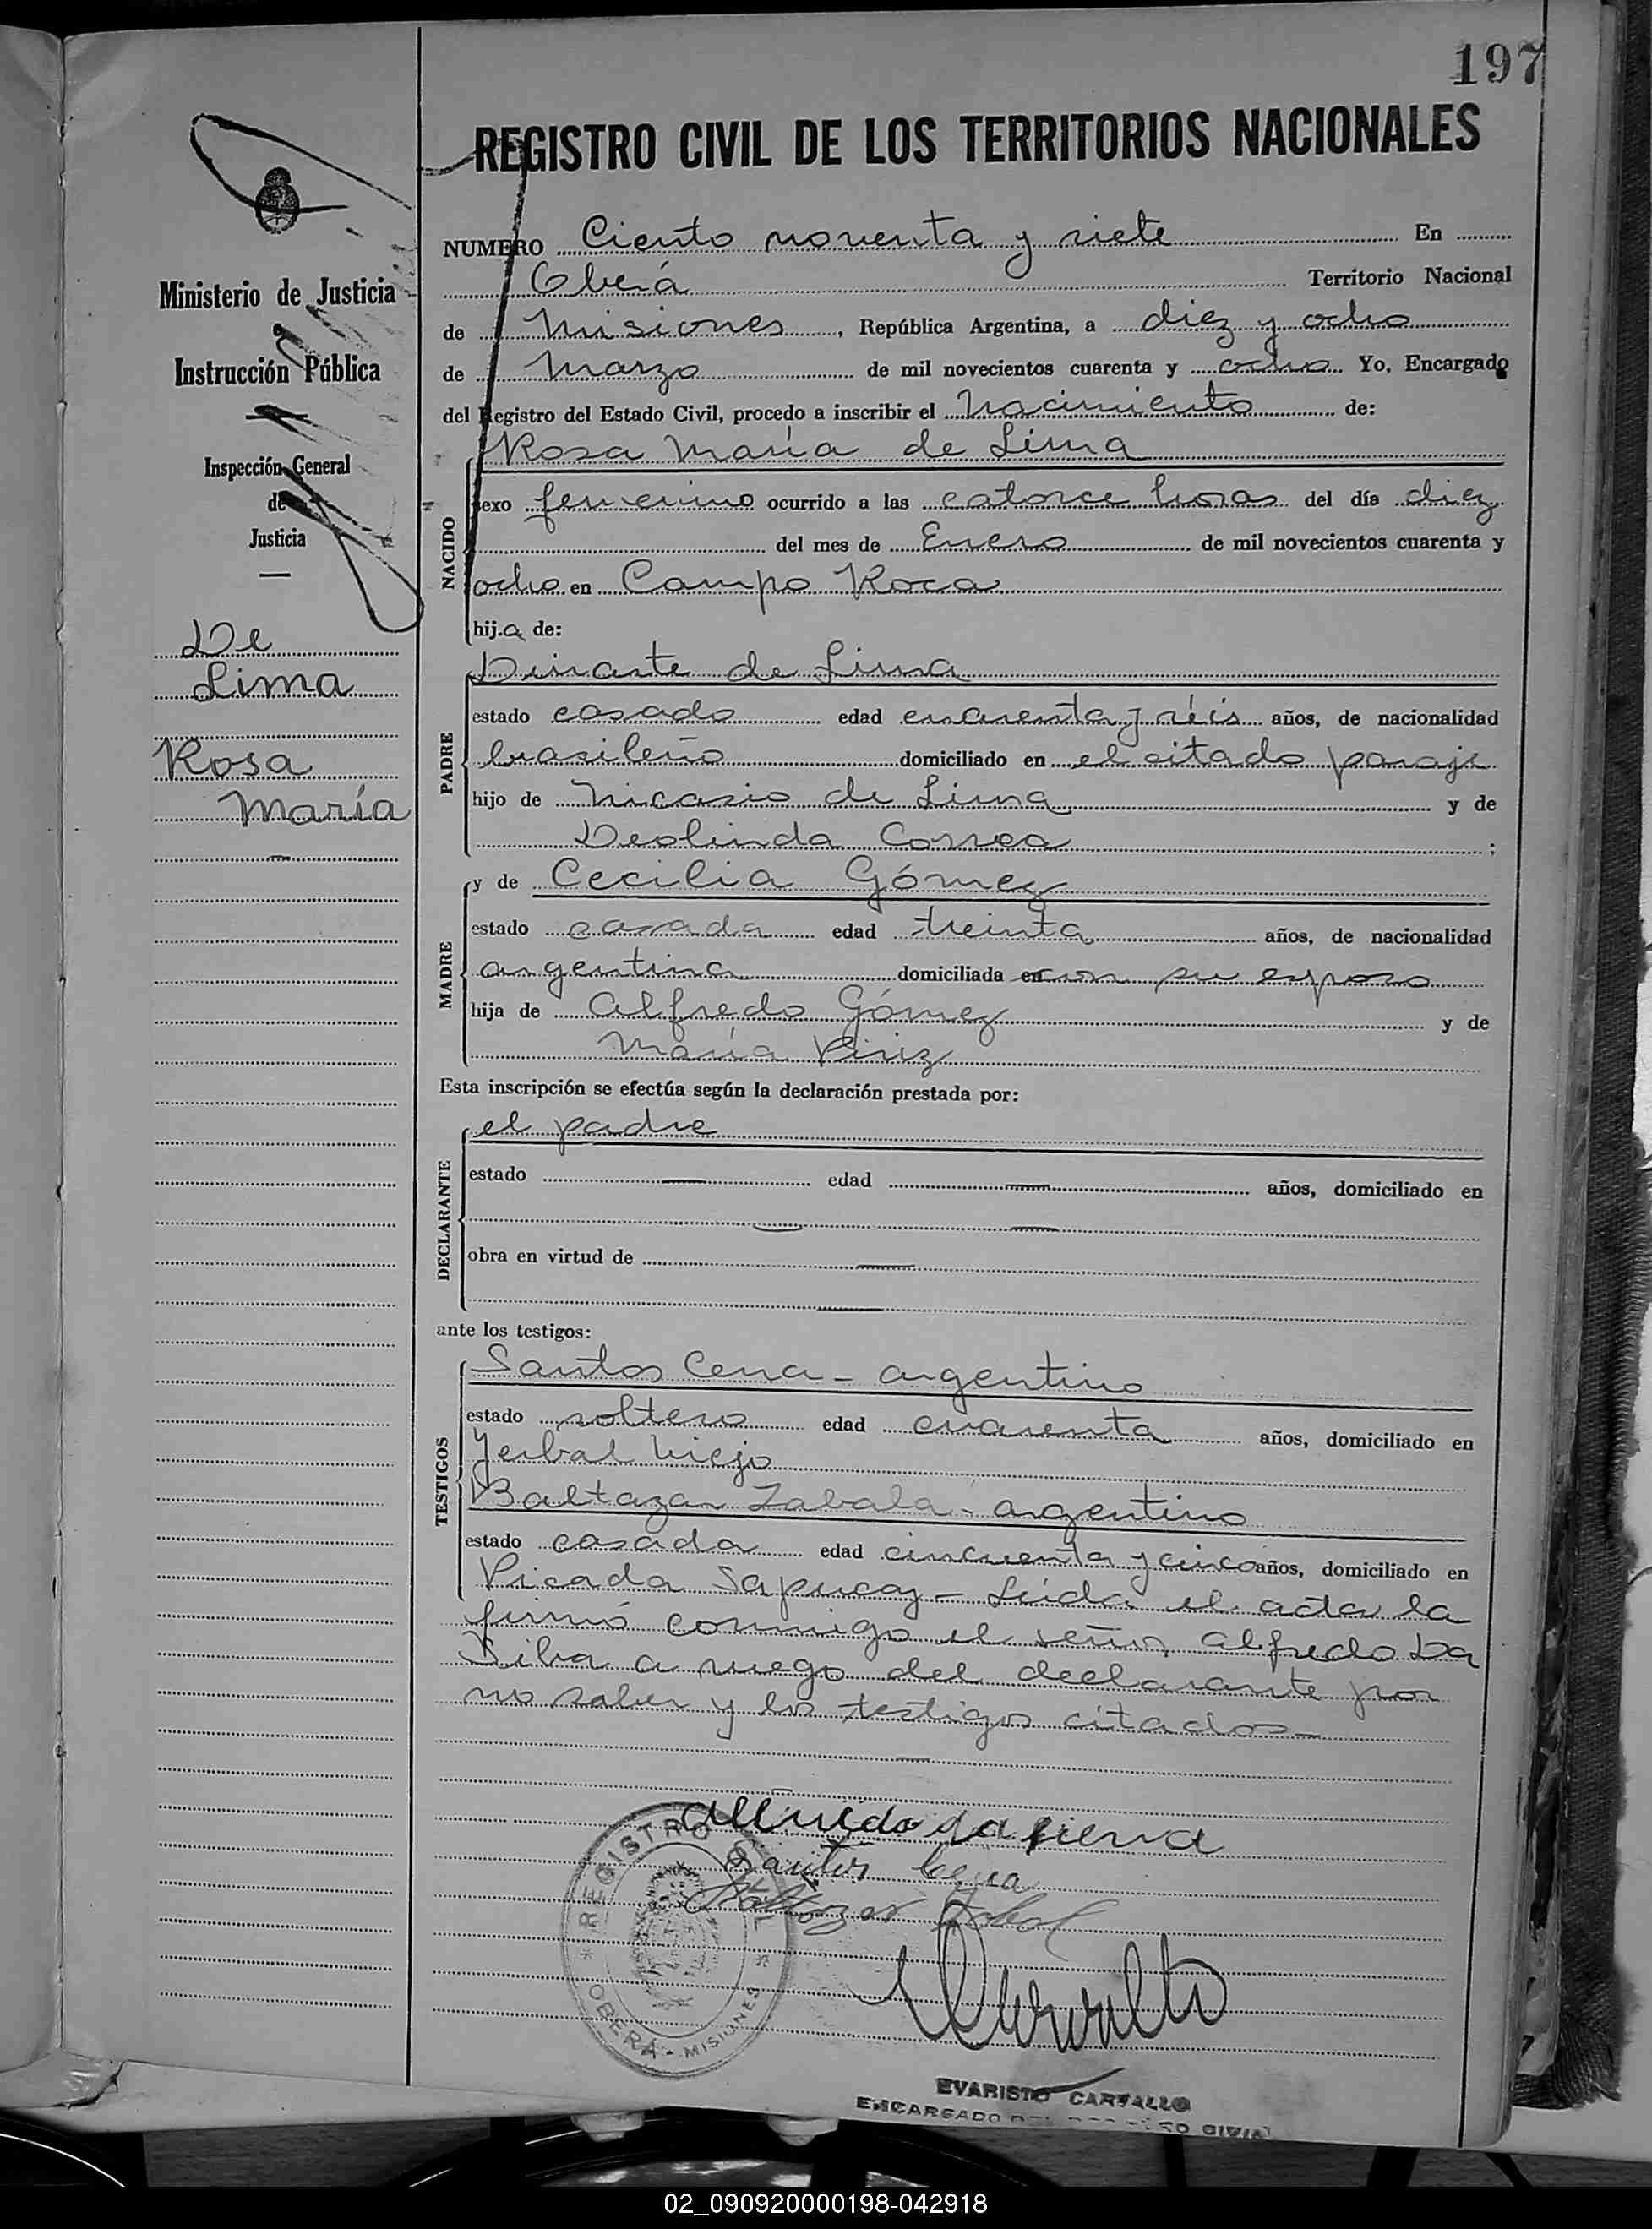 197
REGISTRO CIVIL DE LOS TERRITORIOS NACIONALES
Ministerio de Justicia
Instrucción Pública
Inspección General
de
Justicia
De
Lima
Rosa
María
NUMERO Ciento noventa y siete En
Oberá Territorio Nacional
de Misiones, República Argentina, a diez y ocho
de Marzo de mil novecientos cuarenta y ocho Yo, Encargado
del Registro del Estado Civil, procedo a inscribir el Nacimiento de:
Rosa María de Lima
NACIDO
sexo femenino ocurrido a las catorce horas del día diez
del mes de Enero de mil novecientos cuarenta y
ocho en Campo Roca
hija de:
de Lima
PADRE
estado casado edad cuarenta y séis años, de nacionalidad
brasileño domiciliado en el citado paraje
hijo de Nicasio de Lima y de
Deolinda Correa ;
MADRE
y de Cecilia Gómez
estado casada edad treinta años, de nacionalidad
argentina domiciliada en con su esposo
hija de Alfredo Gómez y de
María Piriz
Esta inscripción se efectúa según la declaración prestada por:
DECLARANTE
el padre
estado — edad — años, domiciliado en
— —
obra en virtud de —
—
ante los testigos:
TESTIGOS
Santos Cena - argentino
estado soltero edad cuarenta años, domiciliado en
Yerbal Viejo
Baltazar Zabala - argentino
estado casada edad cincuenta y cinco años, domiciliado en
Picada Sapucay - Leída el acta la
firmó conmigo el señor Alfredo Da
Silva a ruego del declarante por
no saber y los testigos citados—
Santos Cena
REGISTRO CIVIL
* OBERÁ - MISIONES *
EVARISTO CARVALLO
ENCARGADO DEL REGISTRO CIVIL
02_090920000198-042918